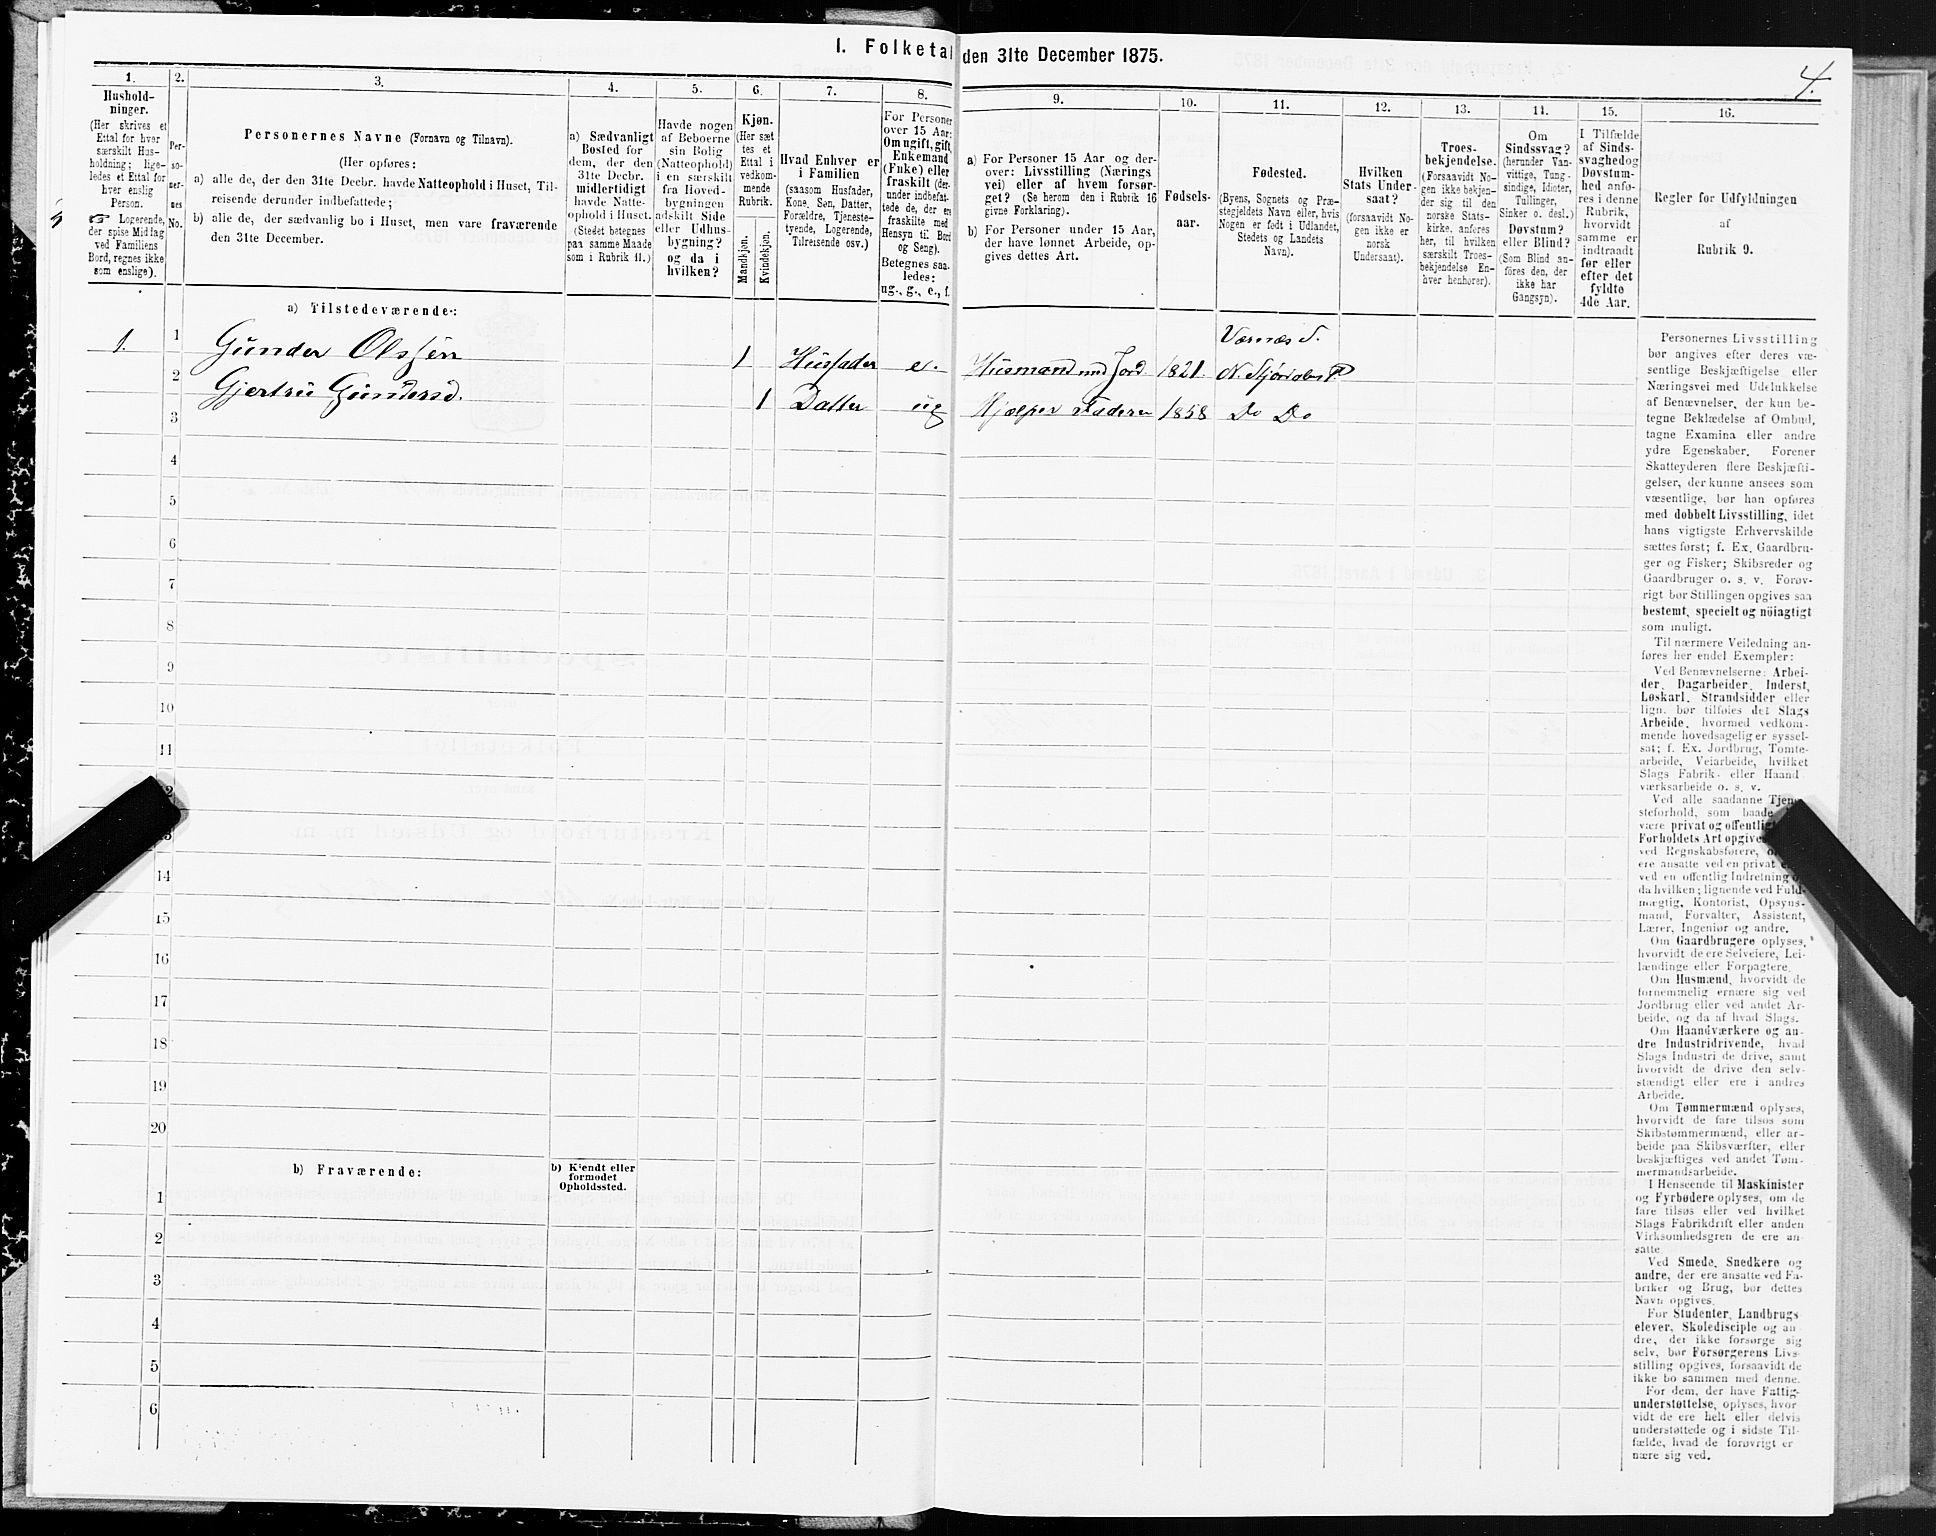 1. Folketal den 31te December 1875.
4.
1.
2.
3.
4.
5.
6.
7.
8.
9.
10.
11.
12.
13.
14.
15.
16.
Hushold-
ninger.
(Her skrives et
Ettal for hver
særskilt Hus-
holdning; lige-
ledes et Ettal for
hver enslig
Person.
☞ Logerende,
der spise Middag
ved Familiens
Bord, regnes ikke
som enslige).
Per-
so-
ner-
nes
No.
Personernes Navne (Fornavn og Tilnavn).
(Her opføres:
a) alle de, der den 31te Decbr. havde Natteophold i Huset, Til-
reisende derunder indbefattede;
b) alle de, der sædvanlig bo i Huset, men vare fraværende
den 31te December.
a) Sædvanligt
Bosted for
dem, der den
31te Decbr.
midlertidigt
havde Natte-
ophold i Huset.
(Stedet betegnes
paa samme Maade
som i Rubrik 11.)
Havde nogen
af Beboerne
sin Bolig
(Natteophold)
i en særskilt
fra Hoved-
bygningen
adskilt Side
eller Udhus-
bygning?
og da i
hvilken?
Kjøn.
(Her sæt-
tes et
Ettal i
vedkom-
mende
Rubrik.
Mandkjøn.
Kvindekjøn.
Hvad Enhver er
i Familien
(saasom Husfader,
Kone, Søn, Datter,
Forældre, Tjeneste-
tyende, Logerende,
Tilreisende osv.)
For Personer
over 15 Aar:
Om ugift, gift,
Enkemand
(Enke) eller
fraskilt (der-
under indbefat-
tede de, der ere
fraskilte med
Hensyn til Bord
og Seng).
Betegnes saa-
ledes:
ug., g., e., f.
a) For Personer 15 Aar og der-
over: Livsstilling (Nærings
vei) eller af hvem forsør-
get? (Se herom den i Rubrik 16
givne Forklaring).
b) For Personer under 15 Aar,
der have lønnet Arbeide, op-
gives dettes Art.
Fødsels-
aar.
Fødested.
(Byens, Sognets og Præ-
stegjeldets Navn eller, hvis
Nogen er født i Udlandet,
Stedets og Landets
Navn).
Hvilken
Stats Under-
saat?
(forsaavidt No-
gen ikke er
norsk
Undersaat).
Troes-
bekjendelse.
(Forsaavidt No-
gen ikke bekjen-
der sig til den
norske Stats-
kirke, anføres
her, til hvilken
særskilt Troes-
bekjendelse En-
hver henhører).
Om
Sindssvag?
(herunder Van-
vittige, Tung-
sindige, Idioter,
Tullinger,
Sinker o. desl.)
Døvstum?
eller Blind?
(Som Blind an-
føres den, der
ikke har
Gangsyn).
I Tilfælde
af Sinds-
svaghed og
Døvstum-
hed anfø-
res i denne
Rubrik,
hvorvidt
samme er
indtraadt
før eller
efter det
fyldte
4de Aar.
Regler for Udfyldningen
af
Rubrik 9.
a) Tilstedeværende:
1. 1 Gunder Olssen 1 Husfader e. Husmand med Jord 1821 Værnæs S. N. Stjørdalens P.
2 Gjertru Gundersd. 1 Datter ug Hjælper Faderen 1858 Do Do
3
4
5
6
7
8
9
10
11
14
15
16
17
18
19
20
b) Fraværende:
b) Kjendt eller
formodet
Opholdssted.
1
2
3
4
5
6
Personernes Livsstilling
bør angives efter deres væ-
sentlige Beskjæftigelse eller
Næringsvei med Udelukkelse
af Benævnelser, der kun be-
tegne Beklædelse af Ombud,
tagne Examina eller andre
ydre Egenskaber. Forener
Skatteyderen flere Beskjæfti-
gelser, der kunne ansees som
væsentlige, bør han opføres
med dobbelt Livsstilling, idet
hans vigtigste Erhvervskilde
sættes først; f. Ex. Gaardbru-
ger og Fisker; Skibsreder og
Gaardbruger o. s. v. Forøv-
rigt bør Stillingen opgives saa
bestemt, specielt og nöiagtigt
som muligt.
Til nærmere Veiledning an-
føres her endel Exempler:
Ved Benævnelserne: Arbei-
der, Dagarbeider, Inderst,
Løskarl, Strandsidder eller
lign. bør tilføies det Slags
Arbeide, hvormed vedkom-
mende hovedsagelig er syssel-
sat; f. Ex. Jordbrug, Tomte-
arbeide, Veiarbeide, hvilket
Slags Fabrik- eller Haand-
værksarbeide o. s. v.
Ved alle saadanne Tjene-
steforhold, som baade
være privat og offentligt
Forholdets Art opgives
ved Regnskabsførere,
ere ansatte ved en privat
ved en offentlig Indretning
da hvilken; lignende ved Fuld-
mægtig, Kontorist, Opsyns-
mand, Forvalter, Assistent,
Lærer, Ingeniør og andre.
Om Gaardbrugere oplyses,
hvorvidt de ere Selveiere, Lei-
lændinge eller Forpagtere.
Om Husmænd, hvorvidt de
fornemmelig ernære sig ved
Jordbrug eller ved andet Ar-
beide, og da af hvad Slags.
Om Haandværkere og an-
dre Industridrivende, hvad
Slags Industri de drive, samt
hvorvidt de drive den selv-
stændigt eller ere i andres
Arbeide.
Om Tømmermænd oplyses,
hvorvidt de fare tilsøs som
Skibstømmermænd, eller ar-
beide paa Skibsværfter, eller
beskjæftiges ved andet Tøm-
mermandsarbeide.
I Henseende til Maskinister
og Fyrbødere oplyses, om de
fare tilsøs eller ved hvilket
Slags Fabrikdrift eller anden
Virksomhedsgren de ere an-
satte.
Ved Smede, Snedkere og
andre, der ere ansatte ved Fa-
briker og Brug, bør dettes
Navn opgives.
For Studenter, Landbrugs-
elever, Skoledisciple og an-
dre, der ikke forsørge sig
selv, bør Forsørgerens Livs-
stilling opgives, forsaavidt de
ikke bo sammen med denne.
For dem, der have Fattig-
understøttelse, oplyses, hvor
vidt de ere helt eller delvis
understøttede og i sidste Til-
fælde, hvad de forøvrigt er
nære sig ved.